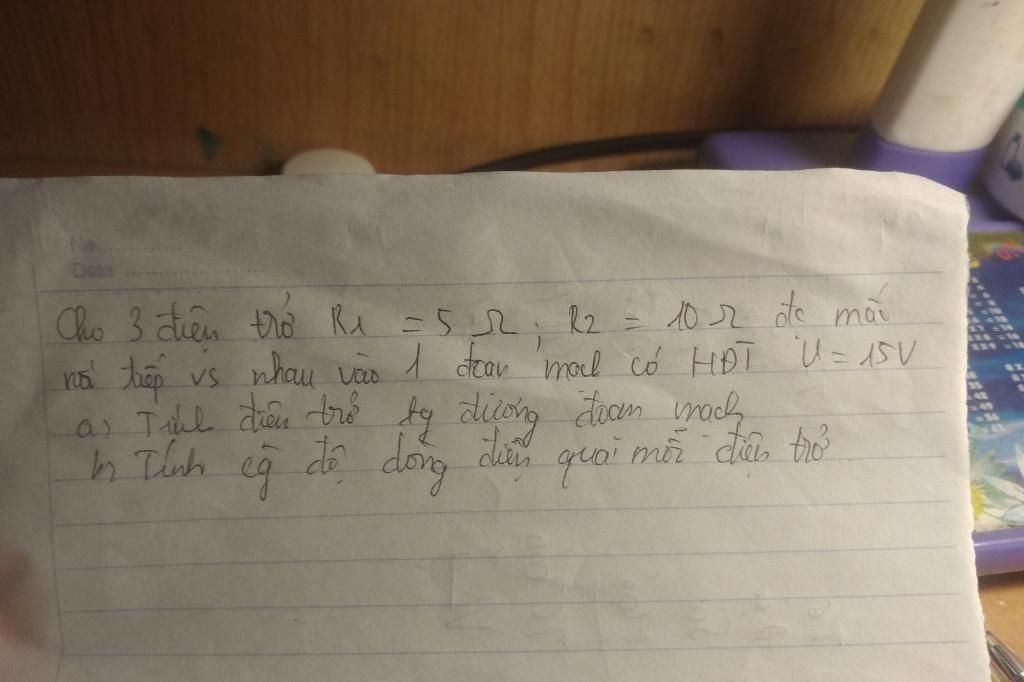 No. ..............
Date ........................
Cho 3 điện trở R1 = 5 Ω ; R2 = 10 Ω đc mắc
nối tiếp vs nhau vào 1 đoạn mạch có HĐT U = 15V
a) Tính điện trở tg đương đoạn mạch
b) Tính cg độ dòng điện quai mỗi điện trở